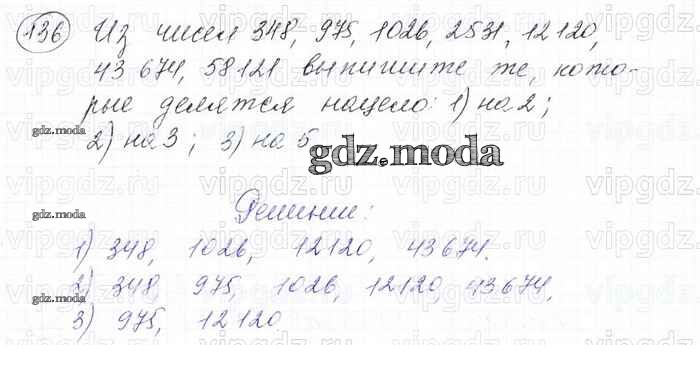 136 Из чисел 348, 975, 1026, 2531, 12120,
43 674, 58121 выпишите те, кото-
рые делятся нацело: 1) на 2;
2) на 3; 3) на 5
gdz.moda
gdz.moda
Решение:
gdz.moda
1) 348, 1026, 12120, 43674.
2) 348, 975, 1026, 12120, 43674,
gdz.moda
3) 975, 12120
vipgdz.ru